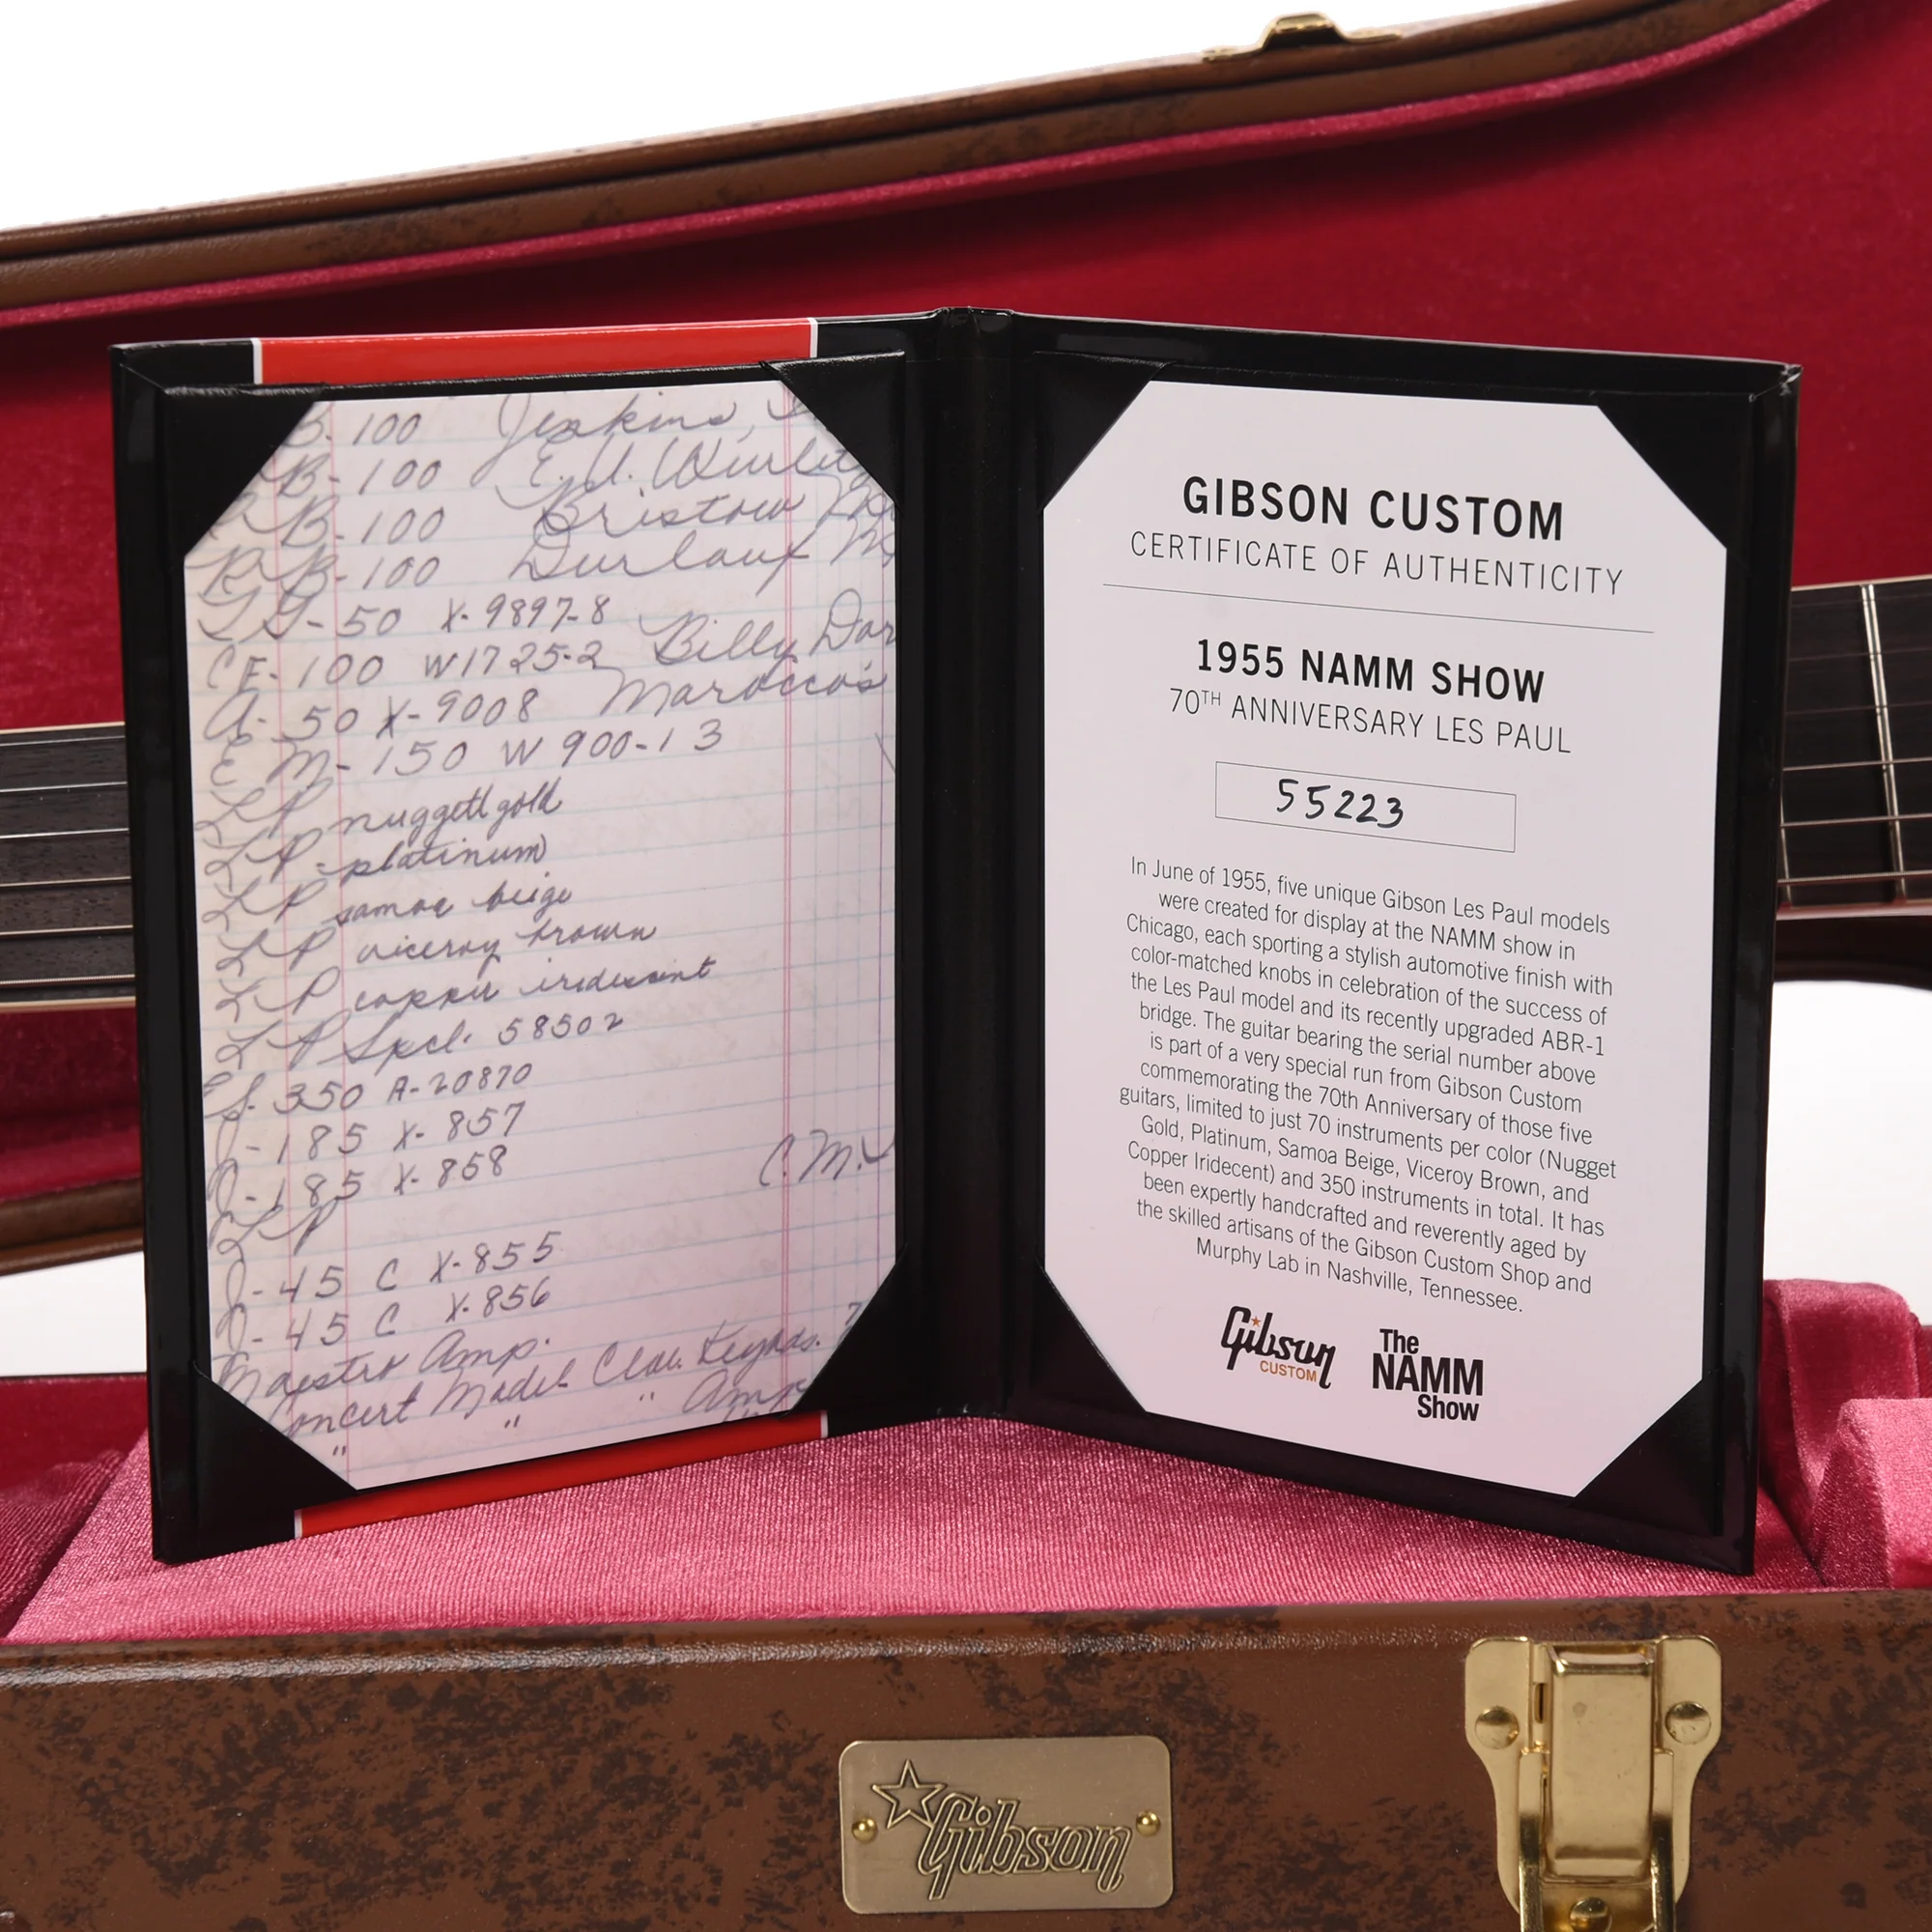 B-100 Jenkins,
B-100 E. U. Wurlitz
RB-100 Bristow
RB-100 Durlauf M
GS-50 X-9897-8
CF-100 W1725-2 Billy Dar
A-50 X-9008 Marocco's
EM-150 W 900-13
LP nuggett gold
LP-platinum
LP samoa beige
LP viceroy brown
LP copper iridescent
LP Specl. 58502
ES-350 A-20870
J-185 X-857
J-185 X-858 C.M.
LP
J-45 C X-855
J-45 C X-856
Maestro Amp.
Concert Model Clav. Keybds. 7
" " " Amp
GIBSON CUSTOM
CERTIFICATE OF AUTHENTICITY
1955 NAMM SHOW
70TH ANNIVERSARY LES PAUL
55223
In June of 1955, five unique Gibson Les Paul models
were created for display at the NAMM show in
Chicago, each sporting a stylish automotive finish with
color-matched knobs in celebration of the success of
the Les Paul model and its recently upgraded ABR-1
bridge. The guitar bearing the serial number above
is part of a very special run from Gibson Custom
commemorating the 70th Anniversary of those five
guitars, limited to just 70 instruments per color (Nugget
Gold, Platinum, Samoa Beige, Viceroy Brown, and
Copper Iridecent) and 350 instruments in total. It has
been expertly handcrafted and reverently aged by
the skilled artisans of the Gibson Custom Shop and
Murphy Lab in Nashville, Tennessee.
Gibson
CUSTOM
The
NAMM
Show
Gibson